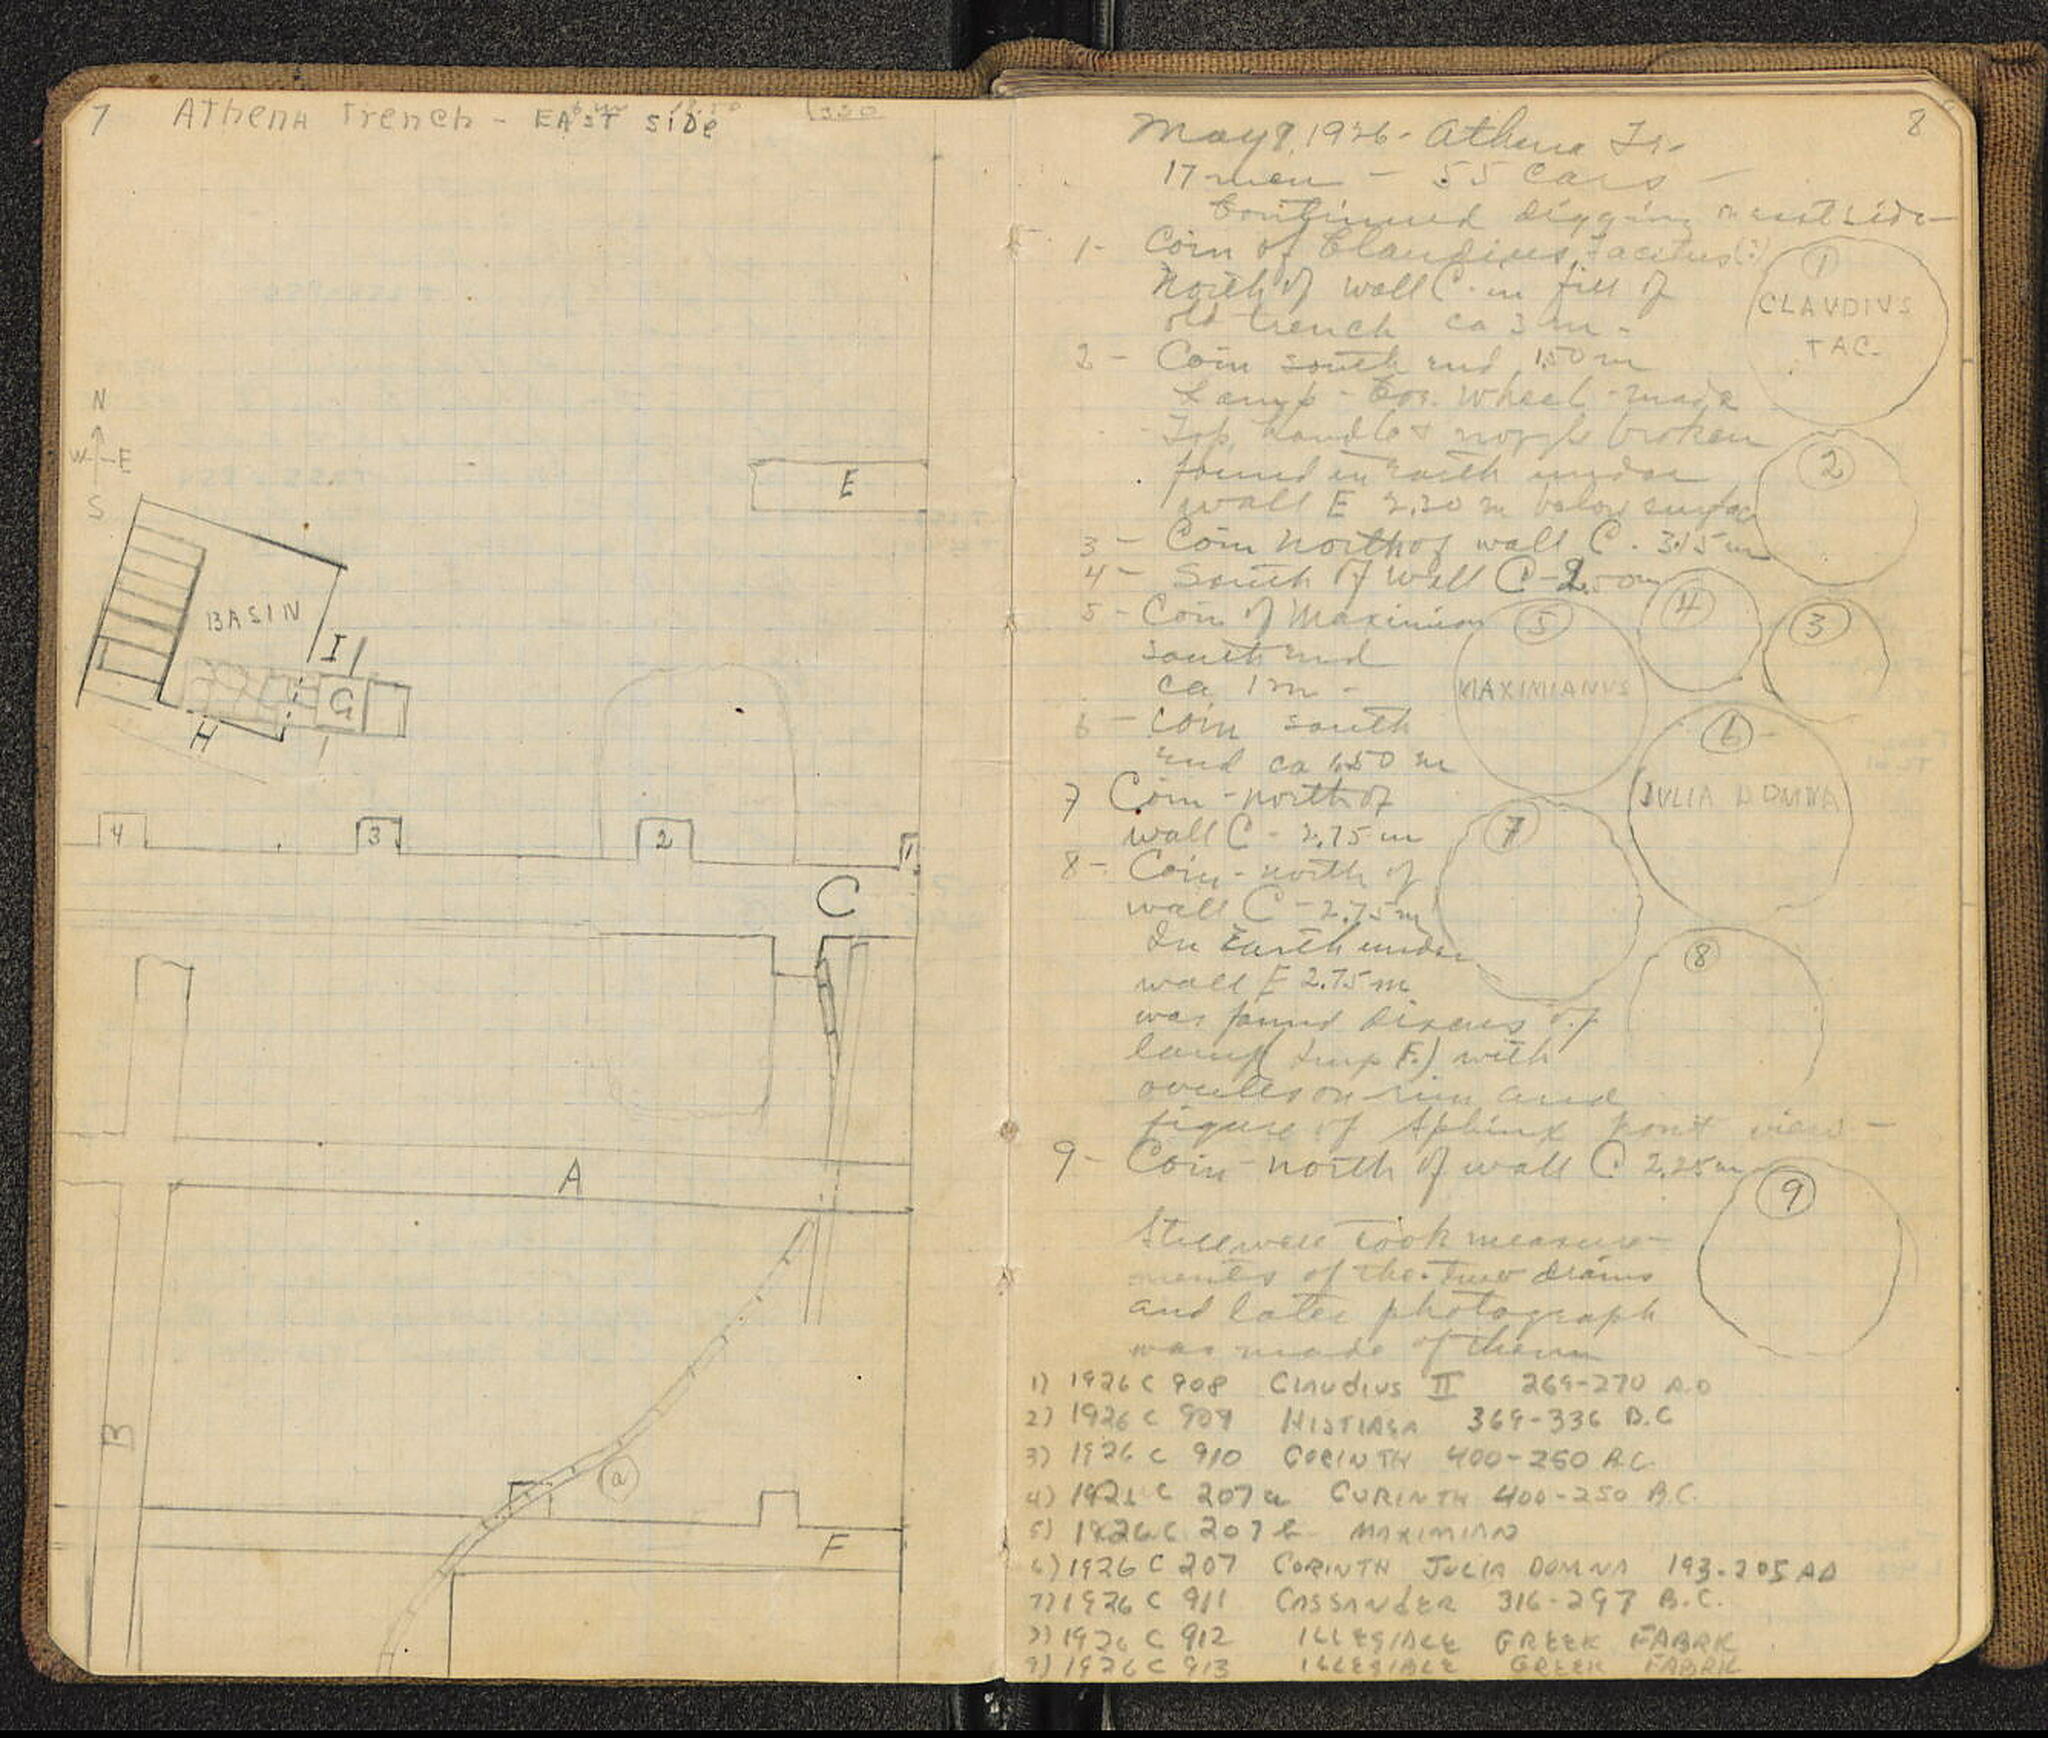 7 Athena Trench - EAST SIDE
N
W E
S
E
BASIN
I
G
H
4 3 2 1
C
A
B
a
F
8
May 1926 - Athena Tr.
17 men - 55 Cars
Continued digging on east side
1- Coin of Claudius Tacitus (?)
North of wall C. in fill of
old trench ca 3 m -
2- Coin south end 1.50 m
Lamp - Cor. wheel-made
Top, handle + nozzle broken
found in earth under
wall E 2.20 m below surface
3- Coin north of wall C. 3.15 m
4- South of wall C - 2.50 m
5- Coin of Maximian
south end
ca 1 m -
6- Coin south
end ca 1.50 m
7 Coin - north of
wall C - 2.75 m
8- Coin - north of
wall C - 2.75 m
In Earth under
wall E 2.75 m
was found discus of
lamp (Imp F.) with
ovules on rim and
figure of Sphinx front view -
9- Coin - north of wall C 2.25 m
Stillwell took measure-
ments of the two drains
and later photograph
was made of them
1
CLAUDIUS
TAC.
2
3
4
5
MAXIMIANUS
6
JULIA DOMNA
7
8
9
1) 1926 C 908 Claudius II 269-270 A.D
2) 1926 C 909 HISTIAEA 369-336 B.C
3) 1926 C 910 CORINTH 400-250 B.C.
4) 1926 C 207a CORINTH 400-250 B.C.
5) 1926 C 207b MAXIMIAN
6) 1926 C 207 CORINTH JULIA DOMNA 193-205 AD
7) 1926 C 911 CASSANDER 316-297 B.C.
8) 1926 C 912 ILLEGIBLE GREEK FABRK
9) 1926 C 913 ILLEGIBLE GREEK FABRK